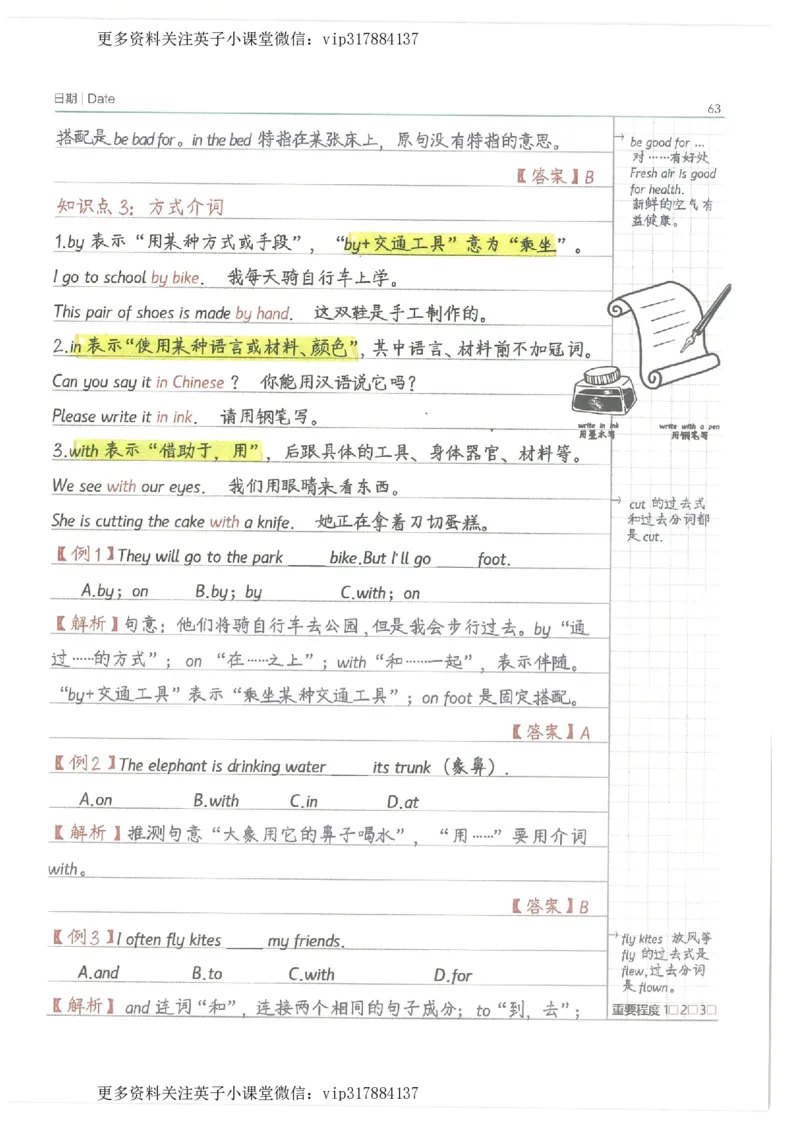 更多资料关注英子小课堂微信：vip317884137
日期 | Date
63
搭配是 be bad for。in the bed 特指在某张床上，原句没有特指的意思。
【答案】B
知识点 3：方式介词
1.by 表示“用某种方式或手段”，“by+交通工具”意为“乘坐”。
I go to school by bike. 我每天骑自行车上学。
This pair of shoes is made by hand. 这双鞋是手工制作的。
2.in 表示“使用某种语言或材料、颜色”，其中语言、材料前不加冠词。
Can you say it in Chinese？ 你能用汉语说它吗？
Please write it in ink. 请用钢笔写。
3.with 表示“借助于，用”，后跟具体的工具、身体器官、材料等。
We see with our eyes. 我们用眼睛来看东西。
She is cutting the cake with a knife. 她正在拿着刀切蛋糕。
【例1】They will go to the park ____ bike.But I'll go ____ foot.
A.by；on B.by；by C.with；on
【解析】句意：他们将骑自行车去公园，但是我会步行过去。by“通
过……的方式”；on “在……之上”；with“和……一起”，表示伴随。
“by+交通工具”表示“乘坐某种交通工具”；on foot 是固定搭配。
【答案】A
【例2】The elephant is drinking water ____ its trunk（象鼻）.
A.on B.with C.in D.at
【解析】推测句意“大象用它的鼻子喝水”，“用……”要用介词
with。
【答案】B
【例3】I often fly kites ____ my friends.
A.and B.to C.with D.for
【解析】and 连词“和”，连接两个相同的句子成分；to“到，去”；
be good for …
对……有好处
Fresh air is good
for health.
新鲜的空气有
益健康。
write in ink
用墨水写
write with a pen
用钢笔写
cut 的过去式
和过去分词都
是 cut.
fly kites 放风筝
fly 的过去式是
flew,过去分词
是 flown。
重要程度 1□2□3□
更多资料关注英子小课堂微信：vip317884137